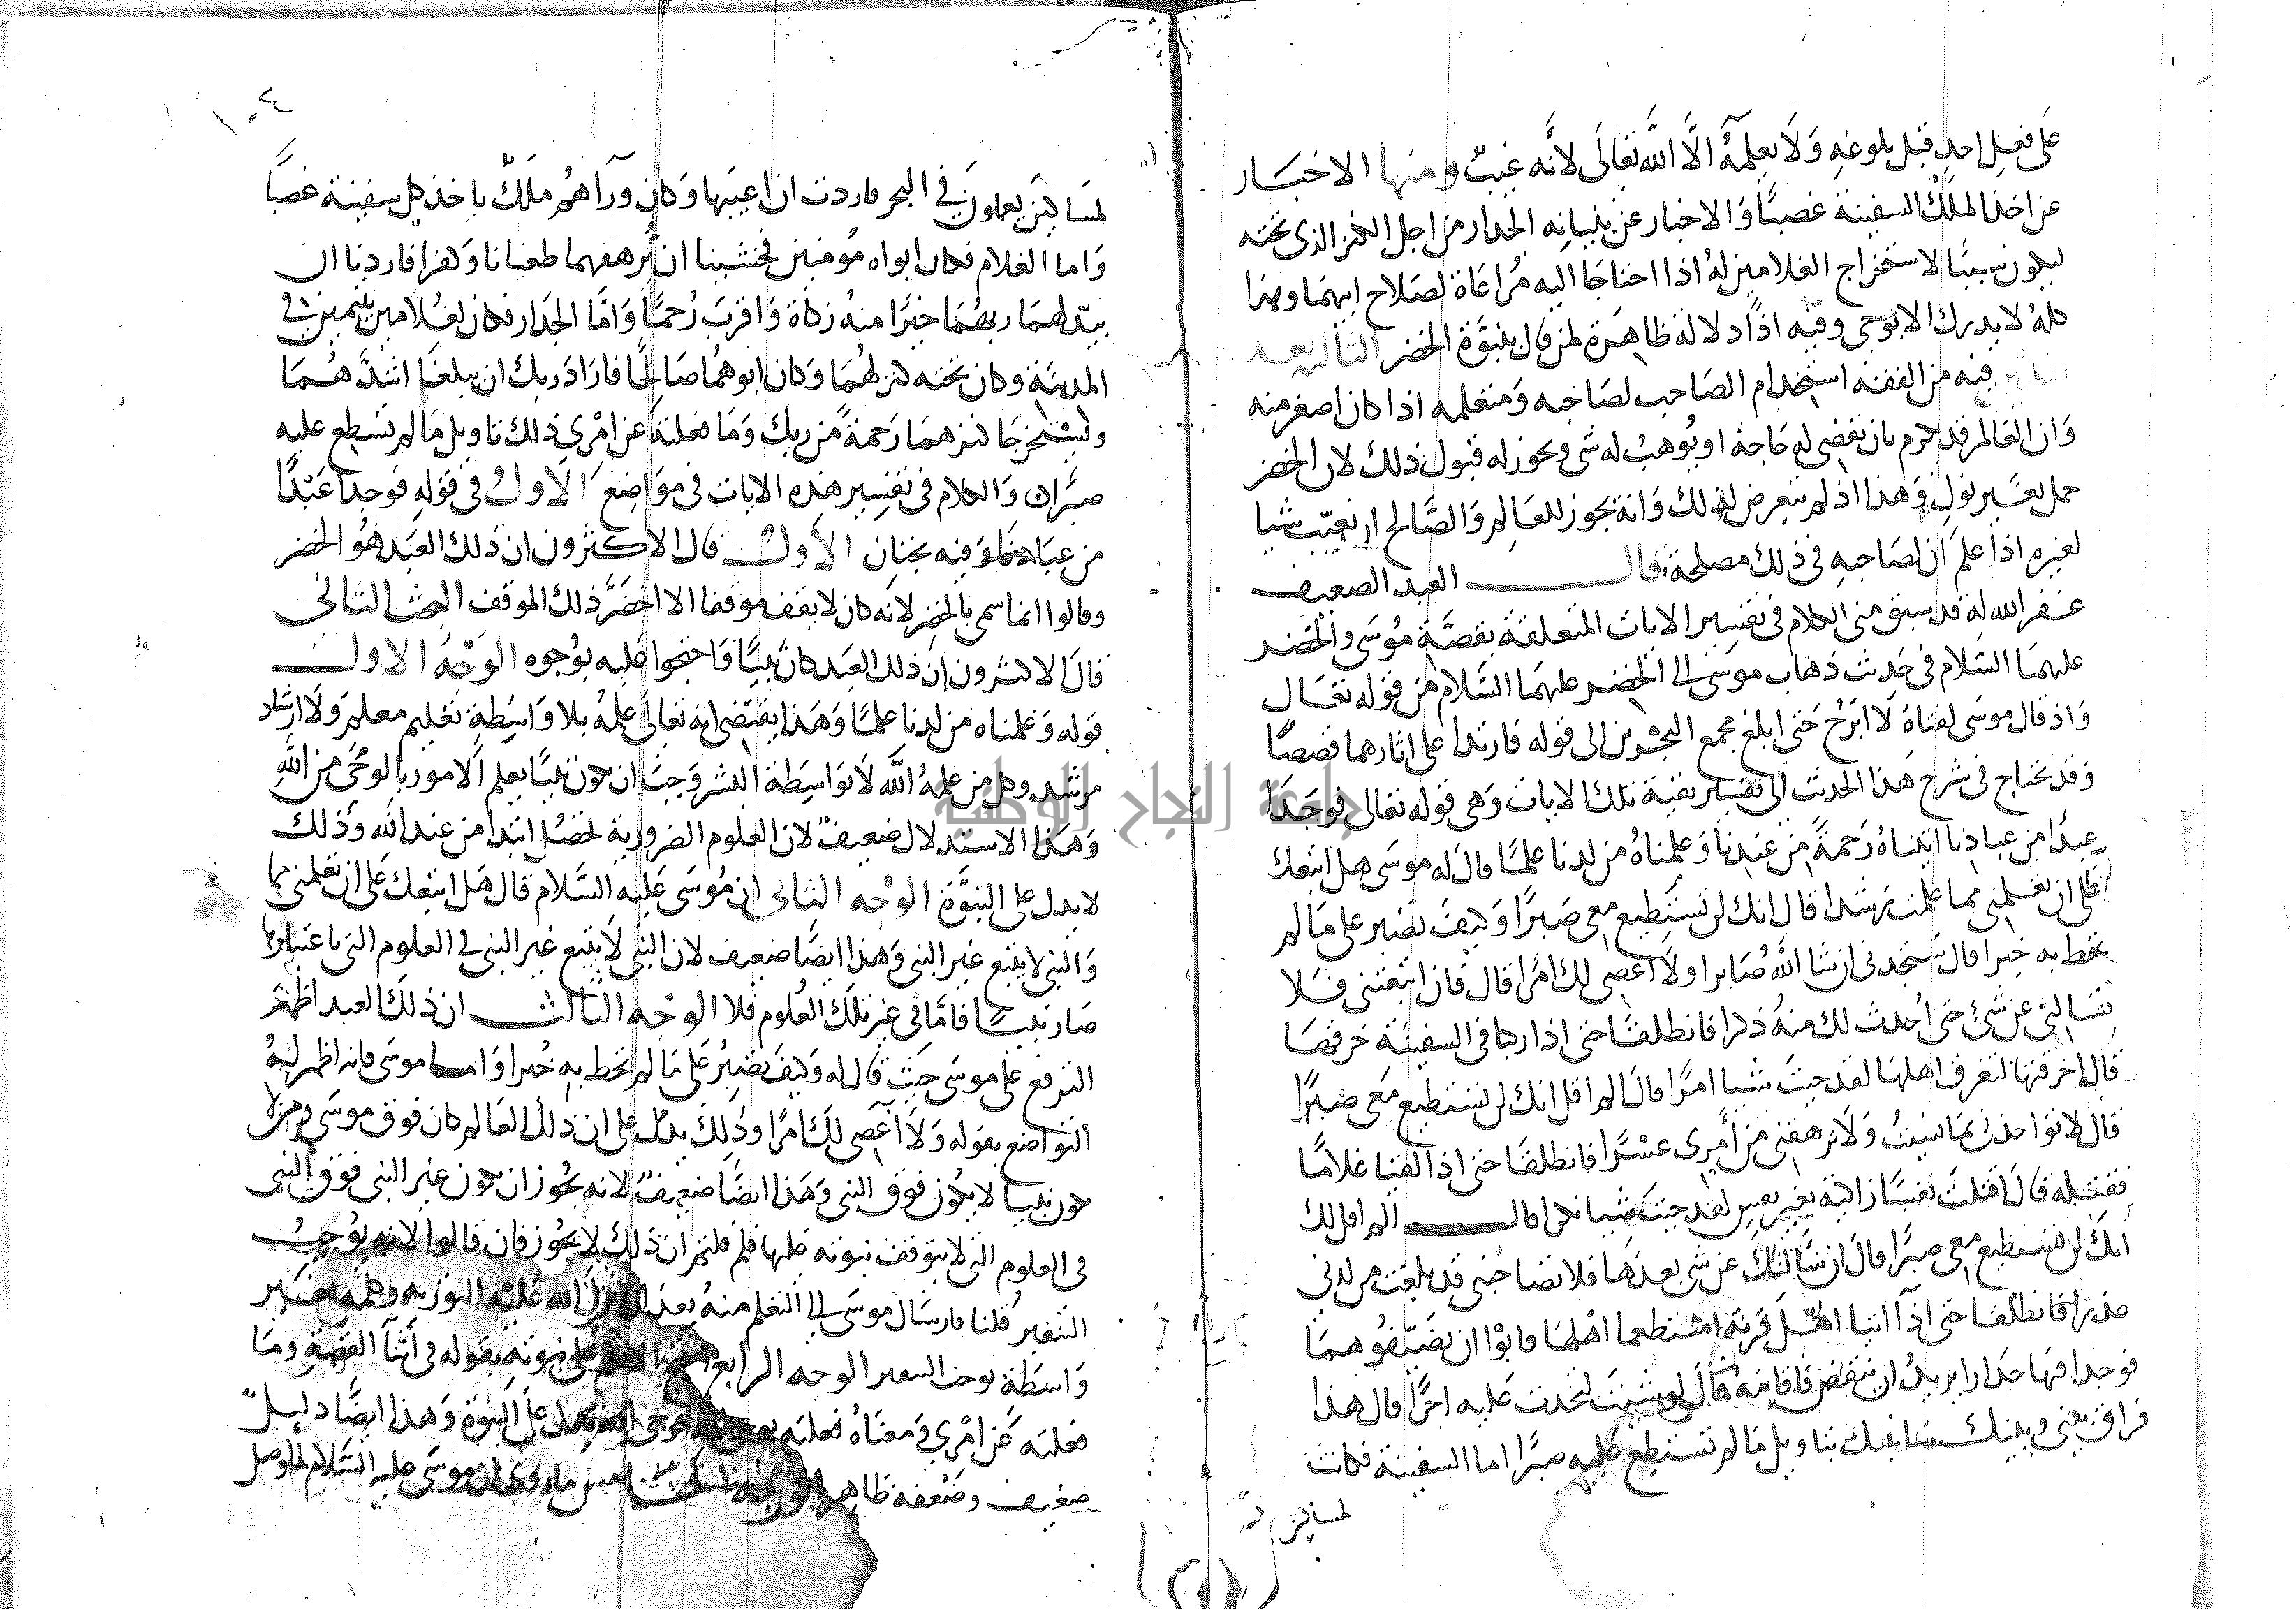 على فعل احد قبل بلوغه ولا يعلمه الا الله تعالى لانه غيب ومنها الاخبار
عن اخذ الملك السفينة غصبا والاخبار عن بنيانه الجدار من اجل الكنز الذى تحته
ليكون سببا لاستخراج الغلامين له اذا احتاجا اليه مراعاة لصلاح ابيهما وهذا
كله لا يدرك الا بوحى وفيه اذا دلالة ظاهرة لمن قال بنبوة الخضر
فيه من الفقه استخدام الصاحب لصاحبه ومتعلمه اذا كان اصغر منه
وان العالم قد يكرم بان تقضى له حاجة او يوهب له شى ويجوز له قبول ذلك لان الخضر
حمل بغير نول وهذا اذ لم يتعرض لذلك وانه يجوز للعالم والصالح ان يعيب شيا
لغيره اذا علم ان لصاحبه فى ذلك مصلحة قال العبد الضعيف
غفر الله له قد سبق منى الكلام فى تفسير الايات المتعلقة بقصة موسى والخضر
عليهما السلام فى حديث ذهاب موسى الى الخضر عليهما السلام من قوله تعال
واذ قال موسى لفتاه لا ابرح حتى ابلغ مجمع البحرين الى قوله فارتدا على اثارهما قصصا
وقد نحتاج فى شرح هذا الحديث الى تفسير بقية تلك الايات وهى قوله تعالى فوجدا
عبدا من عبادنا اتيناه رحمة من عندنا وعلمناه من لدنا علما قال له موسى هل اتبعك
على ان تعلمنى مما علمت رشدا قال انك لن تستطيع معى صبرا وكيف تصبر على ما لم
تحط به خبرا قال ستجدنى ان شا الله صابرا ولا اعصى لك امرا قال فان اتبعتنى فلا
تسالنى عن شئ حتى احدث لك منه ذكرا فانطلقا حتى اذا ركبا فى السفينة خرقها
قال اخرقتها لتغرق اهلها لقد جيت شيا امرا قال الم اقل انك لن تستطيع معى صبرا
قال لا تواخذنى بما نسيت ولا ترهقنى من امرى عسرا فانطلقا حتى اذا لقيا غلاما
فقتله قال اقتلت نفسا زاكية بغير نفس لقد جيت شيا نكرا قال الم اقل لك
انك لن تستطيع معى صبرا قال ان سالتك عن شى بعدها فلا تصاحبنى قد بلغت من لدنى
عذرا فانطلقا حتى اذا اتيا اهل قرية استطعما اهلها فابوا ان يضيفوهما
فوجدا فيها جدارا يريد ان ينقض فاقامه قال لو شيت لتخذت عليه اجرا قال هذا
فراق بينى وبينك سانبئك بتاويل ما لم تستطع عليه صبرا اما السفينة فكانت
لمساكين
١٠٤
لمساكين يعملون فى البحر فاردت ان اعيبها وكان ورآهم ملك ياخذ كل سفينة غصبا
واما الغلام فكان ابواه مومنين فخشينا ان يرهقهما طغيانا وكفرا فاردنا ان
يبدلهما ربهما خيرا منه زكاة واقرب رحما واما الجدار فكان لغلامين يتيمين فى
المدينة وكان تحته كنز لهما وكان ابوهما صالحا فاراد ربك ان يبلغا اشدهما
ويستخرجا كنزهما رحمة من ربك وما فعلته عن امرى ذلك تاويل ما لم تسطع عليه
صبرا والكلام فى تفسير هذه الايات فى مواضع الاول فى قوله فوجدا عبدا
من عبادنا وفيه بحثان الاول قال الاكثرون ان ذلك العبد هو الخضر
وقالوا انما سمى بالخضر لانه كان لا يقف موقفا الا اخضر ذلك الموقف البحث الثانى
قال الاكثرون ان ذلك العبد كان نبيا واحتجوا عليه بوجوه الوجه الاول
قوله وعلمناه من لدنا علما وهذا يقتضى انه تعالى علمه بلا واسطة تعليم معلم ولا ارشاد
مرشد وكل من علمه الله لا بواسطة البشر وجب ان يكون نبيا يعلم الامور بالوحى من الله
وهذا الاستدلال ضعيف لان العلوم الضرورية تحصل ابتدا من عند الله وذلك
لا يدل على النبوة الوجه الثانى ان موسى عليه السلام قال هل اتبعك على ان تعلمنى مما
والنبى لا يتبع غير النبى وهذا ايضا ضعيف لان النبى لا يتبع غير النبى فى العلوم التى باعتبارها
صار نبيا فاما فى غير تلك العلوم فلا الوجه الثالث ان ذلك العبد اظهر
الترفع على موسى حيث قال له وكيف تصبر على ما لم تحط به خبرا واما موسى فانه اظهر له
التواضع بقوله ولا اعصى لك امرا وذلك يدل على ان ذلك العالم كان فوق موسى ومن لا
يكون نبيا لا يكون فوق النبى وهذا ايضا ضعيف لانه يجوز ان يكون غير النبى فوق النبى
فى العلوم التى لا يتوقف نبوته عليها فلم قلتم ان ذلك لا يجوز فان قالوا لانه يوجب
التنفير قلنا فارسال موسى الى التعلم منه بعد انزل الله عليه التوراة وكلمه بغير
واسطة يوجب التنفير الوجه الرابع على نبوته بقوله فى اثنآ القصة وما
فعلته عن امرى ومعناه فعلته بوحى يدل على النبوة وهذا ايضا دليل
ضعيف وضعفه ظاهر ما روى ان موسى عليه السلام لما وصل